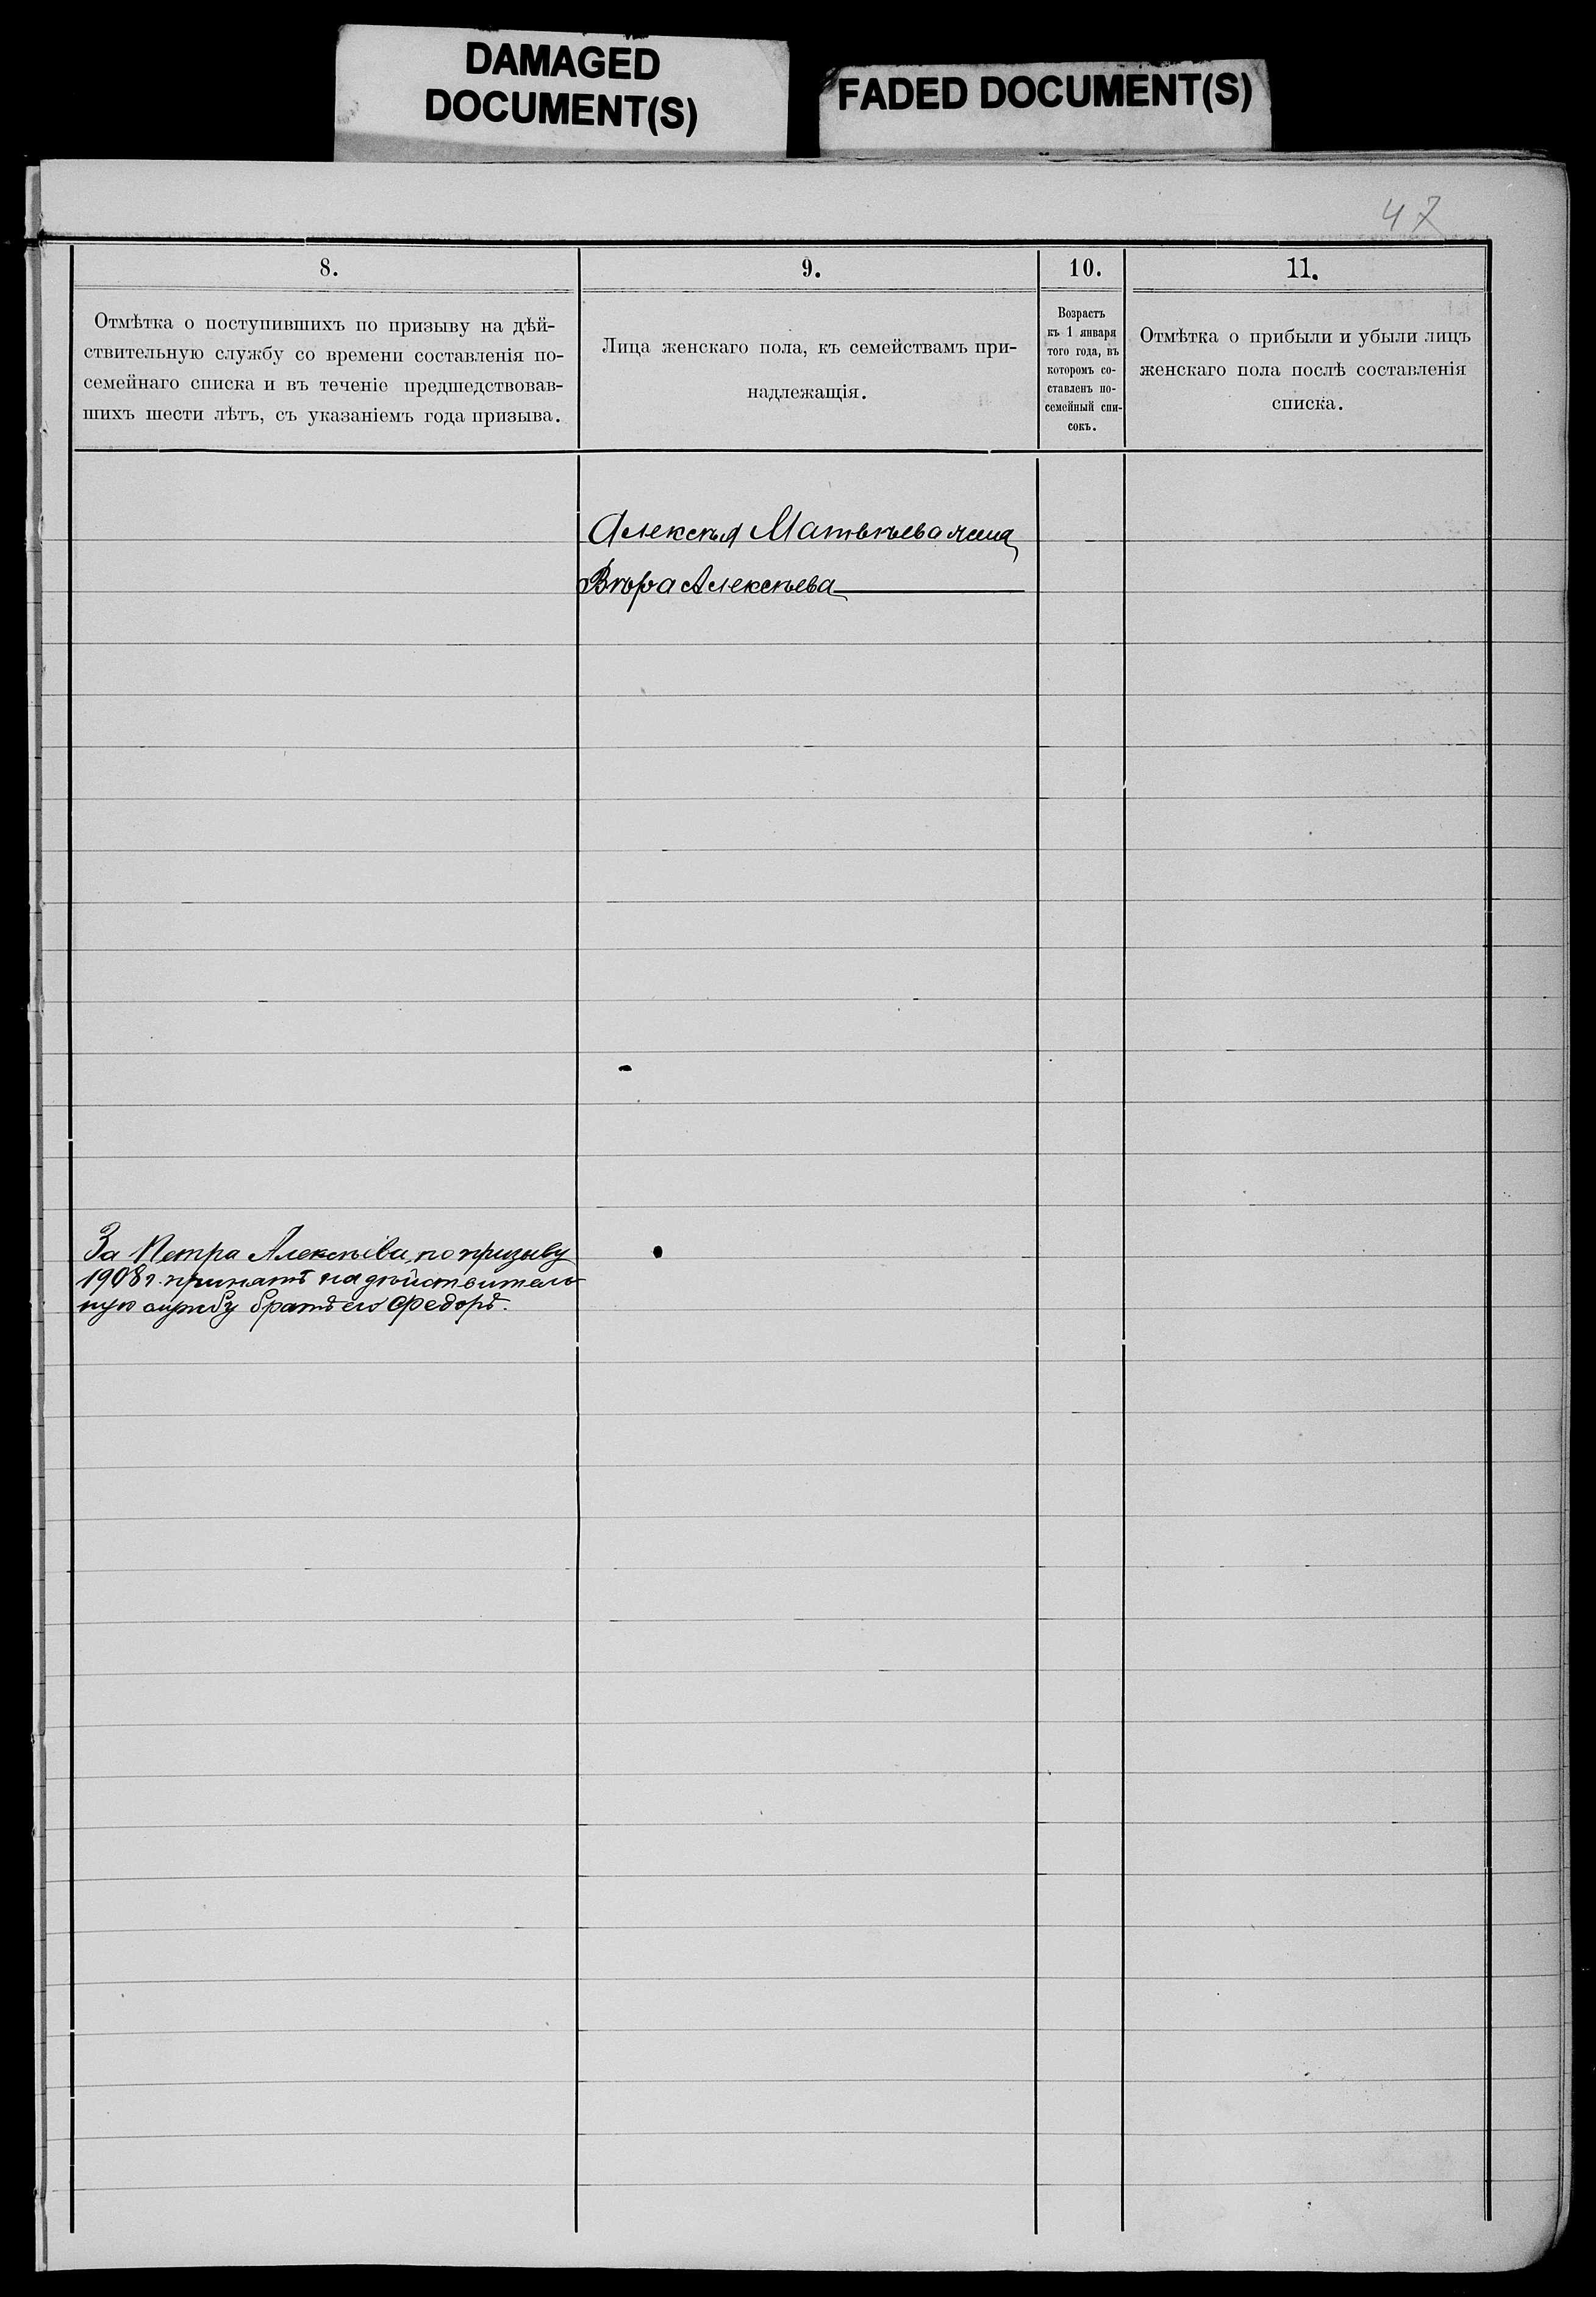 DAMAGED
DOCUMENT(S)
FADED DOCUMENT(S)
47
8.
Отмѣтка о поступившихъ по призыву на дѣй-
ствительную службу со времени составленія по-
семейнаго списка и въ теченіе предшедствовав-
шихъ шести лѣтъ, съ указаніемъ года призыва.
9.
Лица женскаго пола, къ семействамъ при-
надлежащія.
10.
Возрастъ
къ 1 января
того года, въ
которомъ со-
ставленъ по-
семейный спи-
сокъ.
11.
Отмѣтка о прибыли и убыли лицъ
женскаго пола послѣ составленія
списка.
Алексѣя Матвѣева жена
Вѣра Алексѣева
За Петра Алексѣева, по призыву
1908 г. принятъ на дѣйствитель
ную службу братъ его Федоръ.